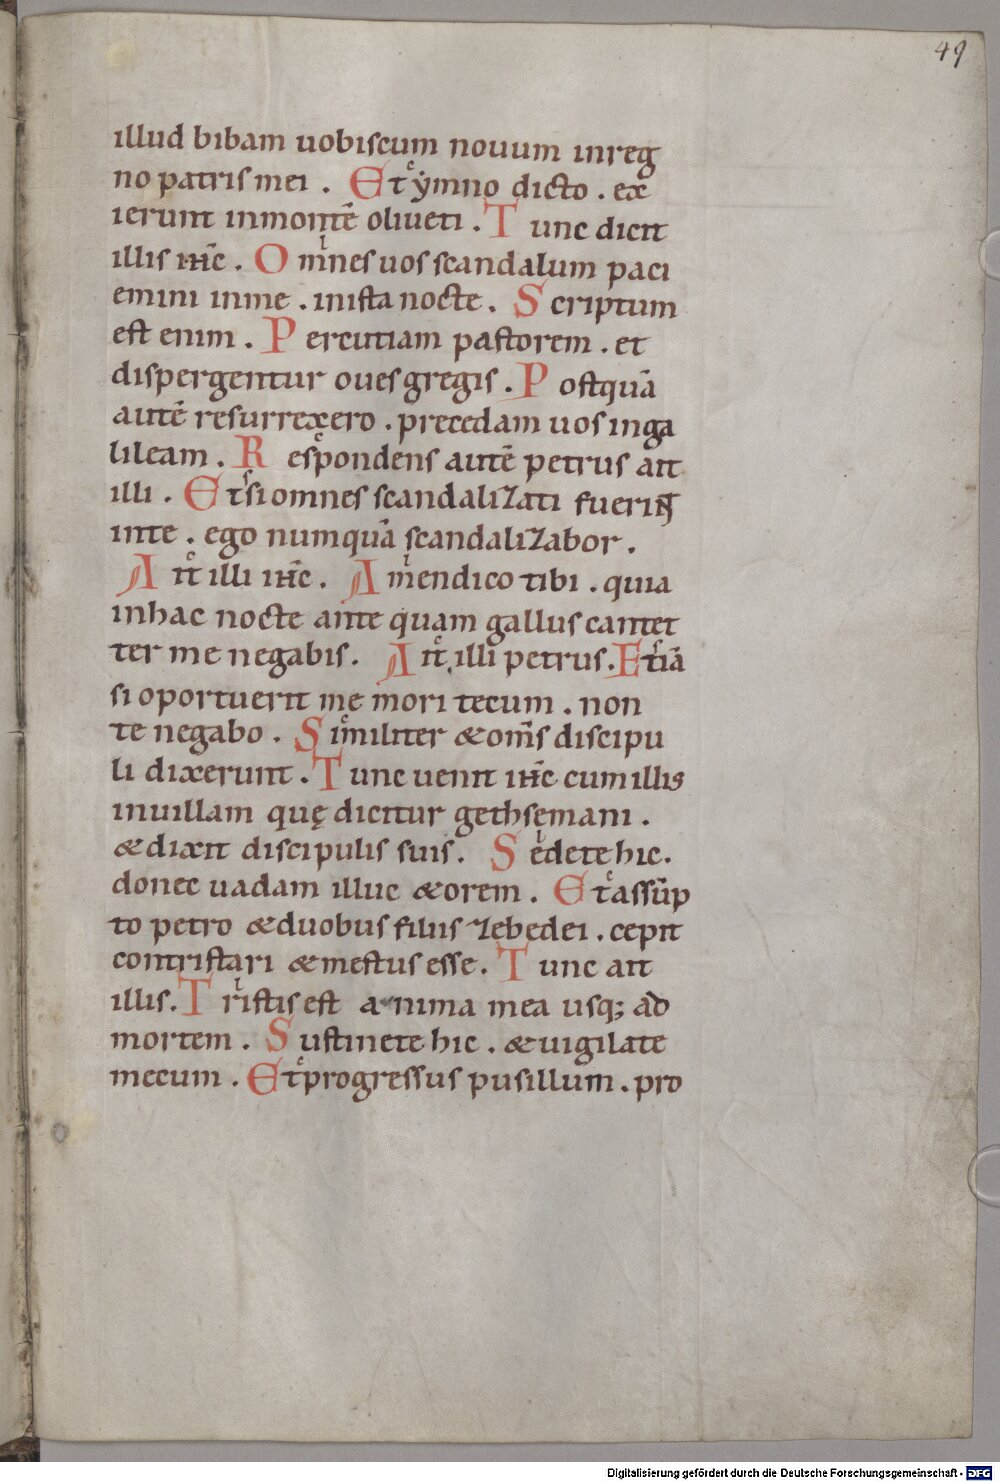 49
illud bibam uobiscum nouum inreg
no patris mei . Et ẏmno dicto . ex
ierunt inmontē oliueti . Tunc dicit
illis ihc̄ . Omnes uos scandalum paci
emini inme . inista nocte . Scriptum
est enim . Percutiam pastorem . et
dispergentur oues gregis . Postquā
autē resurrexero . precedam uos inga
lileam . Respondens autē petrus ait
illi . Et si omnes scandalizati fuerint
inte . ego numquā scandalizabor .
Ait illi ihc̄ . Amendico tibi . quia
inhac nocte ante quam gallus cantet
ter me negabis . Ait illi petrus . Etiā
si oportuerit me mori tecum . non
te negabo . Similiter &om̄s discipu
li dixerunt . Tunc uenit ihc̄ cum illis
inuillam quę dicitur gethsemani .
&dixit discipulis suis . Sedete hic .
donec uadam illuc &orem . Et assūp
to petro &duobus filiis zebedei . cepit
contristari &mestus esse . Tunc ait
illis . Tristis est anima mea usq; ad
mortem . Sustinete hic . &uigilate
mecum . Et progressus pusillum . pro
Digitalisierung gefördert durch die Deutsche Forschungsgemeinschaft - DFG